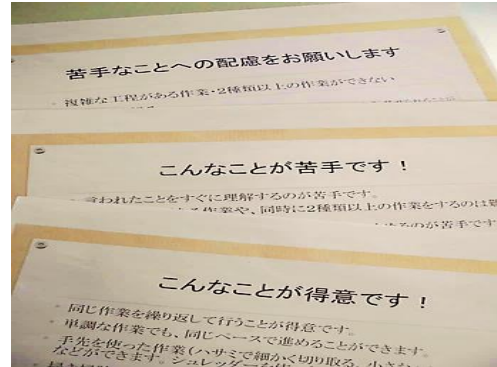 苦手なことへの配慮をお願いします
・複雑な工程がある作業・2種類以上の作業ができない
こんなことが苦手です！
・言われたことをすぐに理解するのが苦手です。
作業や、同時に2種類以上の作業をするのは
のが苦手です
こんなことが得意です！
・同じ作業を繰り返して行うことが得意です。
・単調な作業でも、同じペースで進めることができます。
・手先を使った作業(ハサミで細かく切り取る、小さな
などができます。シュレッダーを